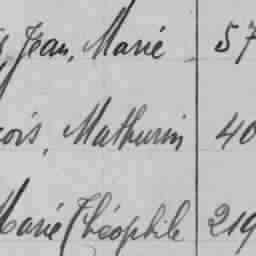 Jean, Marie 57
çois, Mathurin 40
Marie Théophile 219